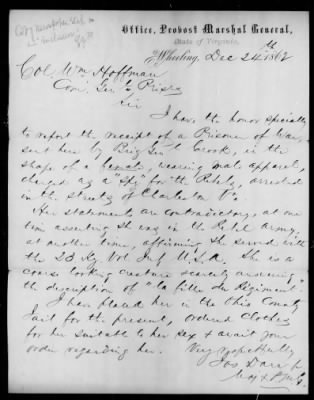 Office, Provost Marshal General,
State of Virginia,
Wheeling, Dec 24th 1862
Col. Wm Hoffman
Com. Genl Prisrs
Sir
I have the honor specially
to report the receipt of a Prisoner of War,
sent here by Brig Genl Crook, in the
shape of a female, wearing male apparel,
charged as a "Spy" for the Rebels, arrested
in the streets of Charleston Va.
Her statements are contradictory, at one
time asserting she was in the Rebel Army,
at another time, affirming she served with
the 23 Ky Vol Inf U.S.A. She is a
coarse looking creature scarcely answering
the description of "la fille du Regiment"
I have placed her in the Ohio County
Jail for the present, ordered clothes
for her suitable to her sex & await your
order regarding her. Very respectfully
Jos Darr Jr
Maj &